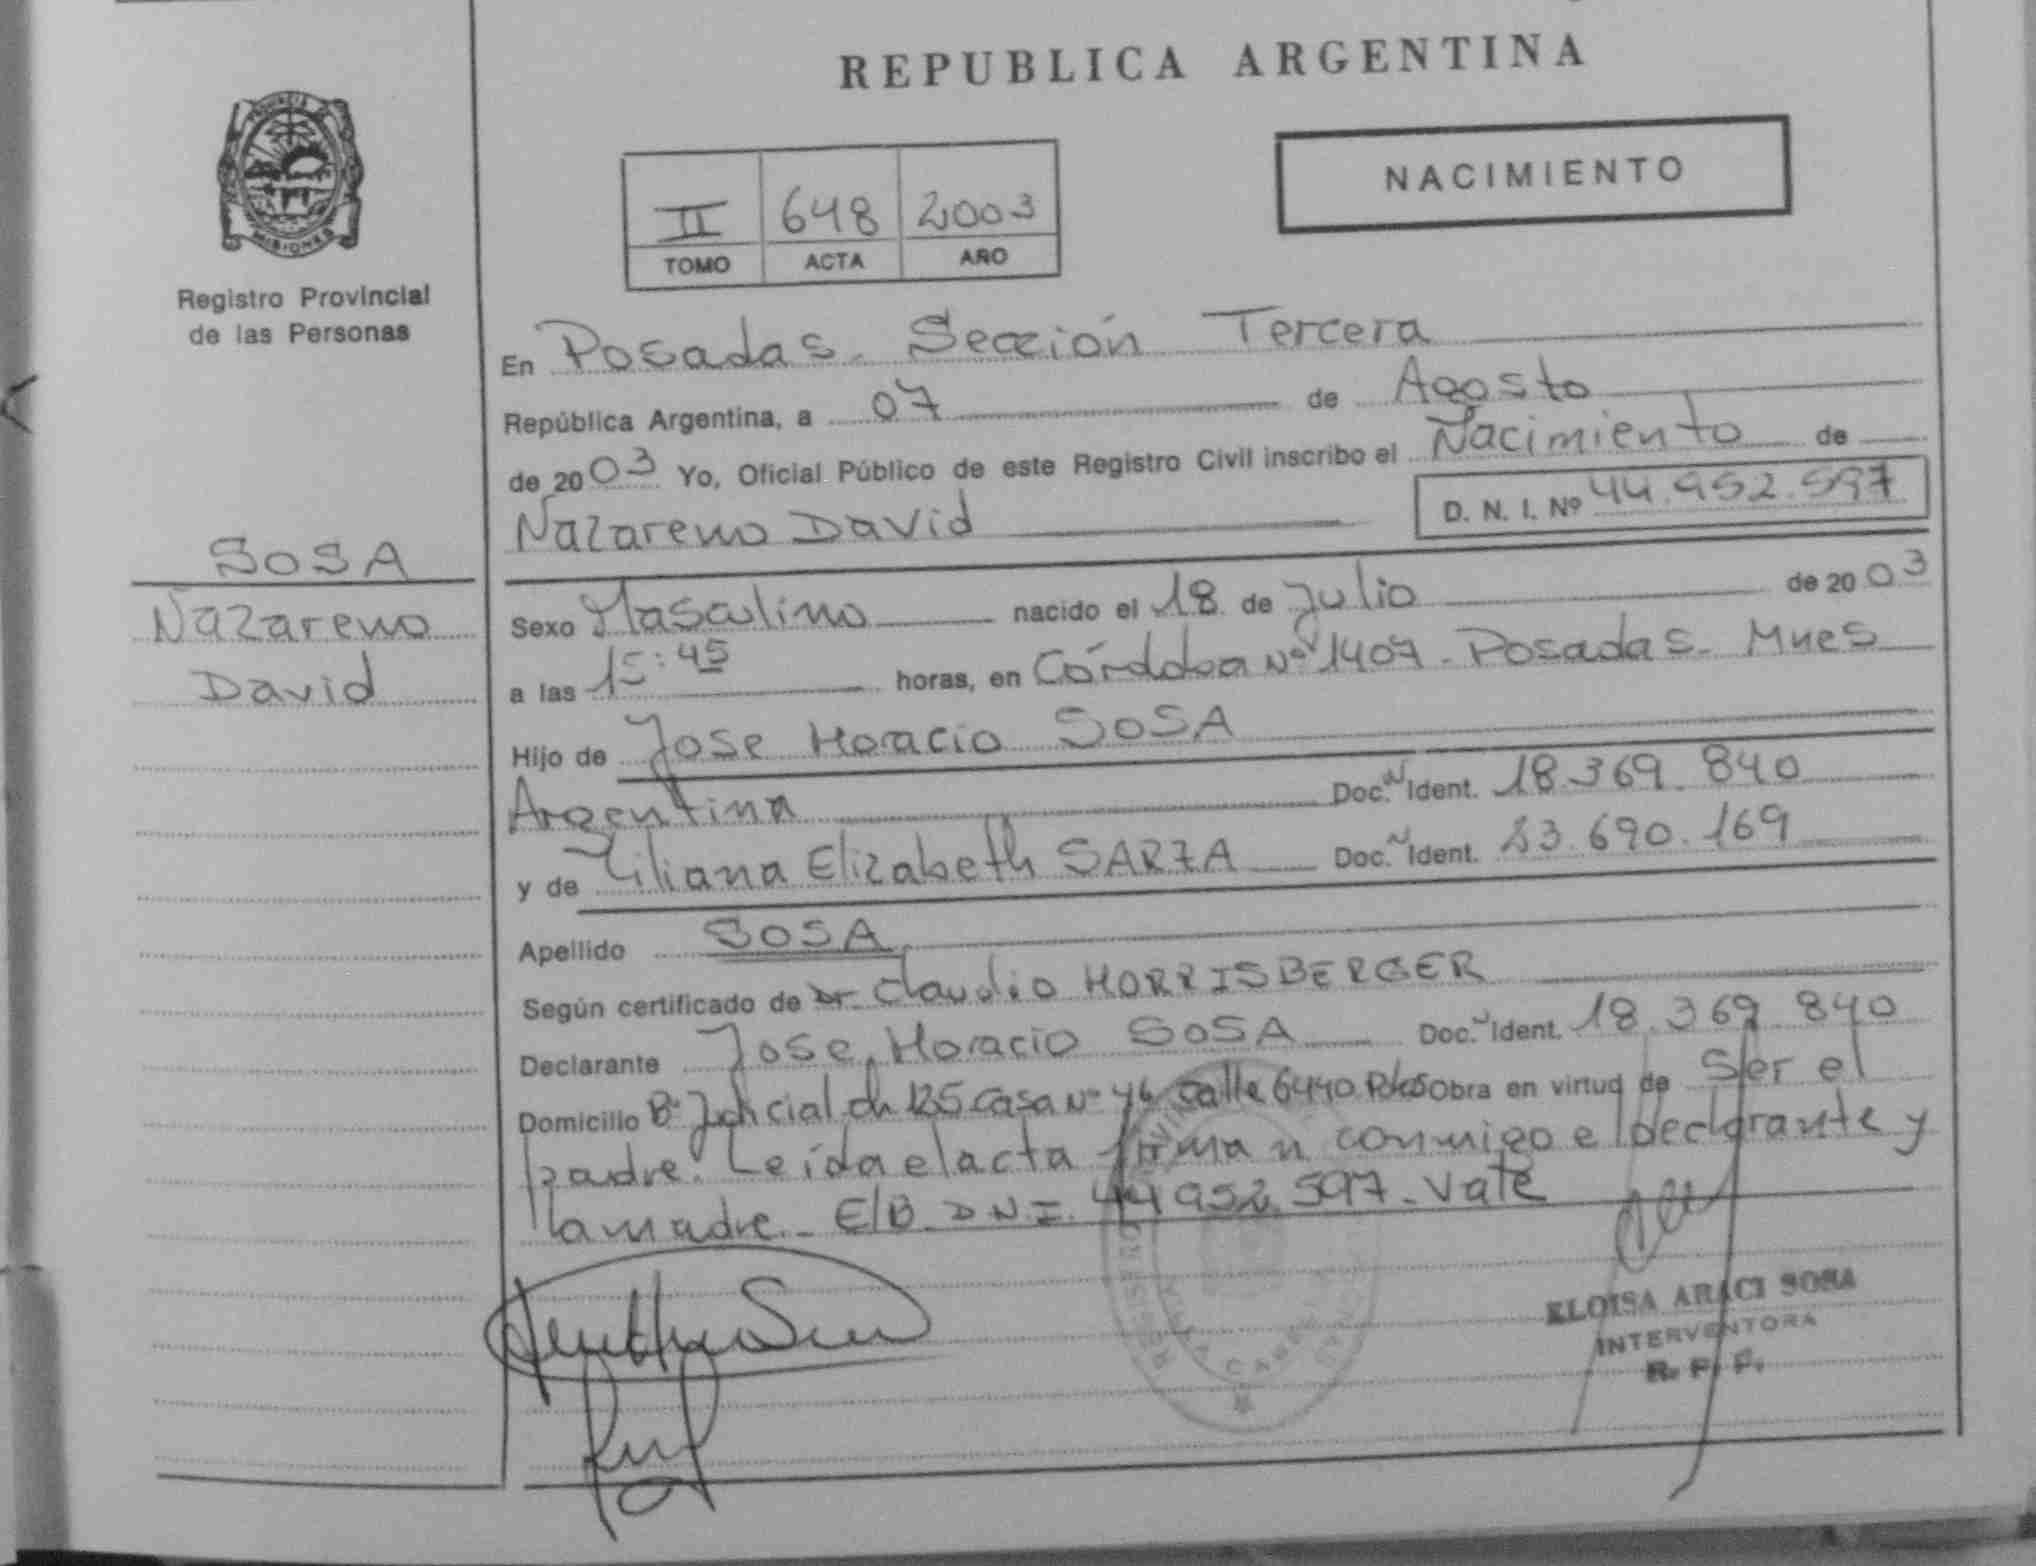 REPUBLICA ARGENTINA
PROVINCIA DE
MISIONES
Registro Provincial
de las Personas
II 648 2003
TOMO ACTA AÑO
NACIMIENTO
En Posadas. Sección Tercera
República Argentina, a 07 de Agosto
de 2003 Yo, Oficial Público de este Registro Civil inscribo el Nacimiento de
Nazareno David D. N. I. Nº 44.952.597
SOSA
Nazareno
David
Sexo Masculino nacido el 18 de Julio de 2003
a las 15:45 horas, en Córdoba Nº 1407 - Posadas - Mnes
Hijo de Jose Horacio SOSA
Argentina Doc. Ident. 18.369.840
y de Liliana Elizabeth SARZA Doc. Ident. 23.690.169
Apellido SOSA
Según certificado de Dr. Claudio HORRISBERGER
Declarante Jose Horacio SOSA Doc. Ident. 18.369.840
Domicilio Bº Judicial ch 125 Casa Nº 46 calle 6440 Pdas Obra en virtud de Ser el
padre. Leída el acta firman conmigo el declarante y
la madre. - E/B. D.N.I. 44.952.597 - Vale
ELOISA ARACI SOSA
INTERVENTORA
R. P. P.